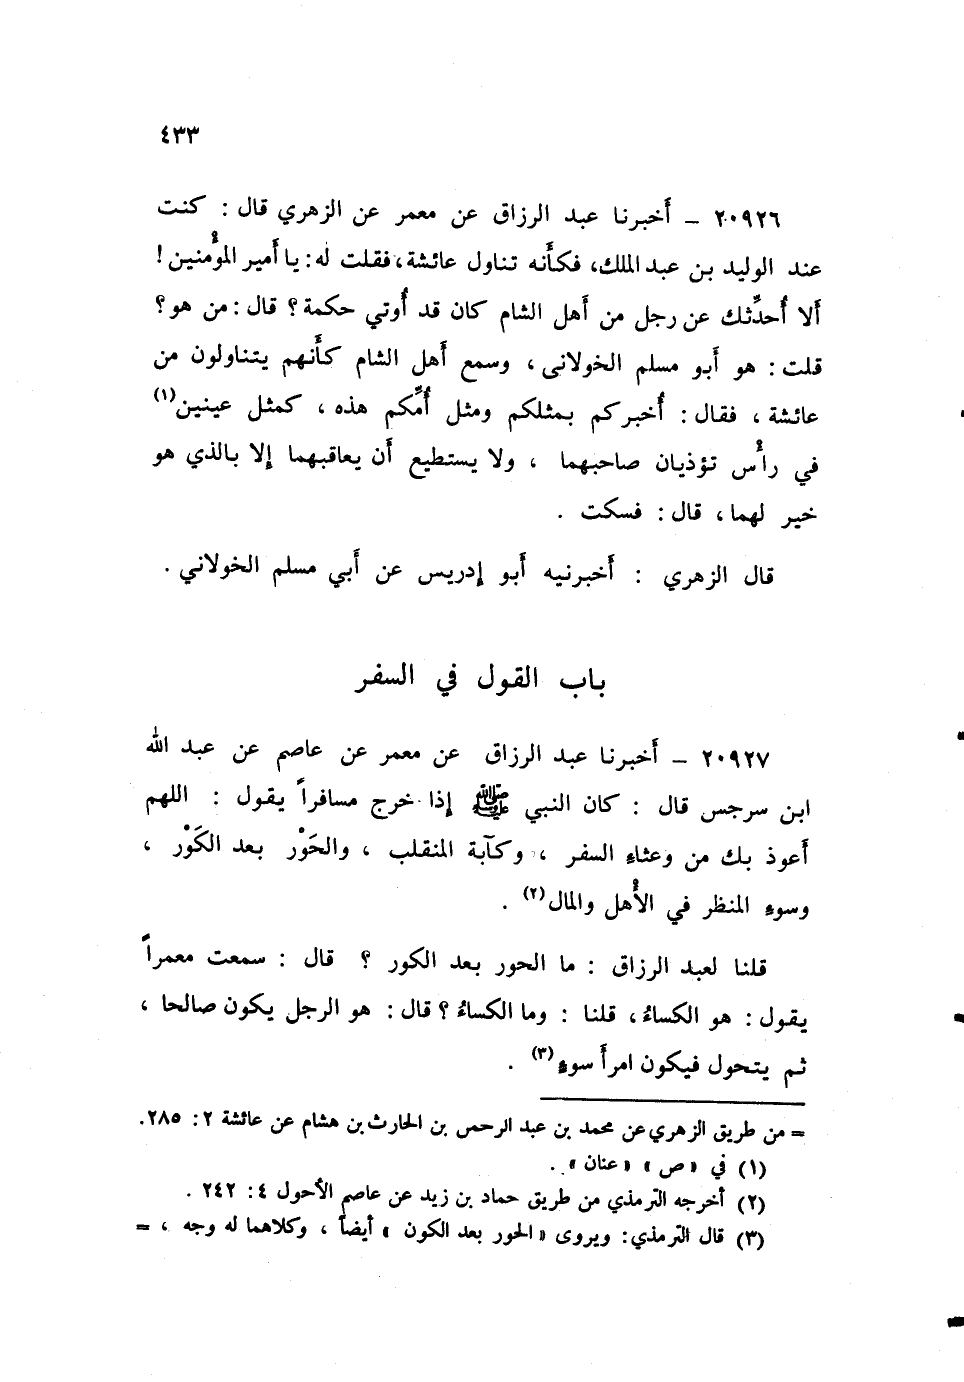 ٤٣٣
٢٠٩٢٦ - أخبرنا عبد الرزاق عن معمر عن الزهري قال : كنت
عند الوليد بن عبد الملك، فكأنه تناول عائشة، فقلت له: يا أمير المؤمنين!
ألا أُحدِّثك عن رجل من أهل الشام كان قد أُوتي حكمة؟ قال: من هو؟
قلت: هو أبو مسلم الخولانى، وسمع أهل الشام كأنهم يتناولون من
عائشة، فقال: أُخبركم بمثلكم ومثل أُمِّكم هذه، كمثل عينين(١)
في رأس تؤذيان صاحبهما ، ولا يستطيع أن يعاقبهما إلا بالذي هو
خير لهما، قال: فسكت .
قال الزهري : أخبرنيه أبو إدريس عن أبي مسلم الخولاني .
باب القول في السفر
٢٠٩٢٧ - أخبرنا عبد الرزاق عن معمر عن عاصم عن عبد الله
ابن سرجس قال : كان النبي ﷺ إذا خرج مسافراً يقول : اللهم
أعوذ بك من وعثاء السفر ، وكآبة المنقلب ، والحَوْر بعد الكَوْر ،
وسوء المنظر في الأُهل والمال(٢) .
قلنا لعبد الرزاق : ما الحور بعد الكور ؟ قال : سمعت معمراً
يقول: هو الكساءُ، قلنا : وما الكساءُ؟ قال: هو الرجل يكون صالحا ،
ثم يتحول فيكون امرأ سوءٍ(٣) .
= من طريق الزهري عن محمد بن عبد الرحمن بن الحارث بن هشام عن عائشة ٢: ٢٨٥.
(١) في «ص» «عنان» .
(٢) أخرجه الترمذي من طريق حماد بن زيد عن عاصم الأحول ٤: ٢٤٢ .
(٣) قال الترمذي: ويروى «الحور بعد الكون» أيضاً ، وكلاهما له وجه ، =